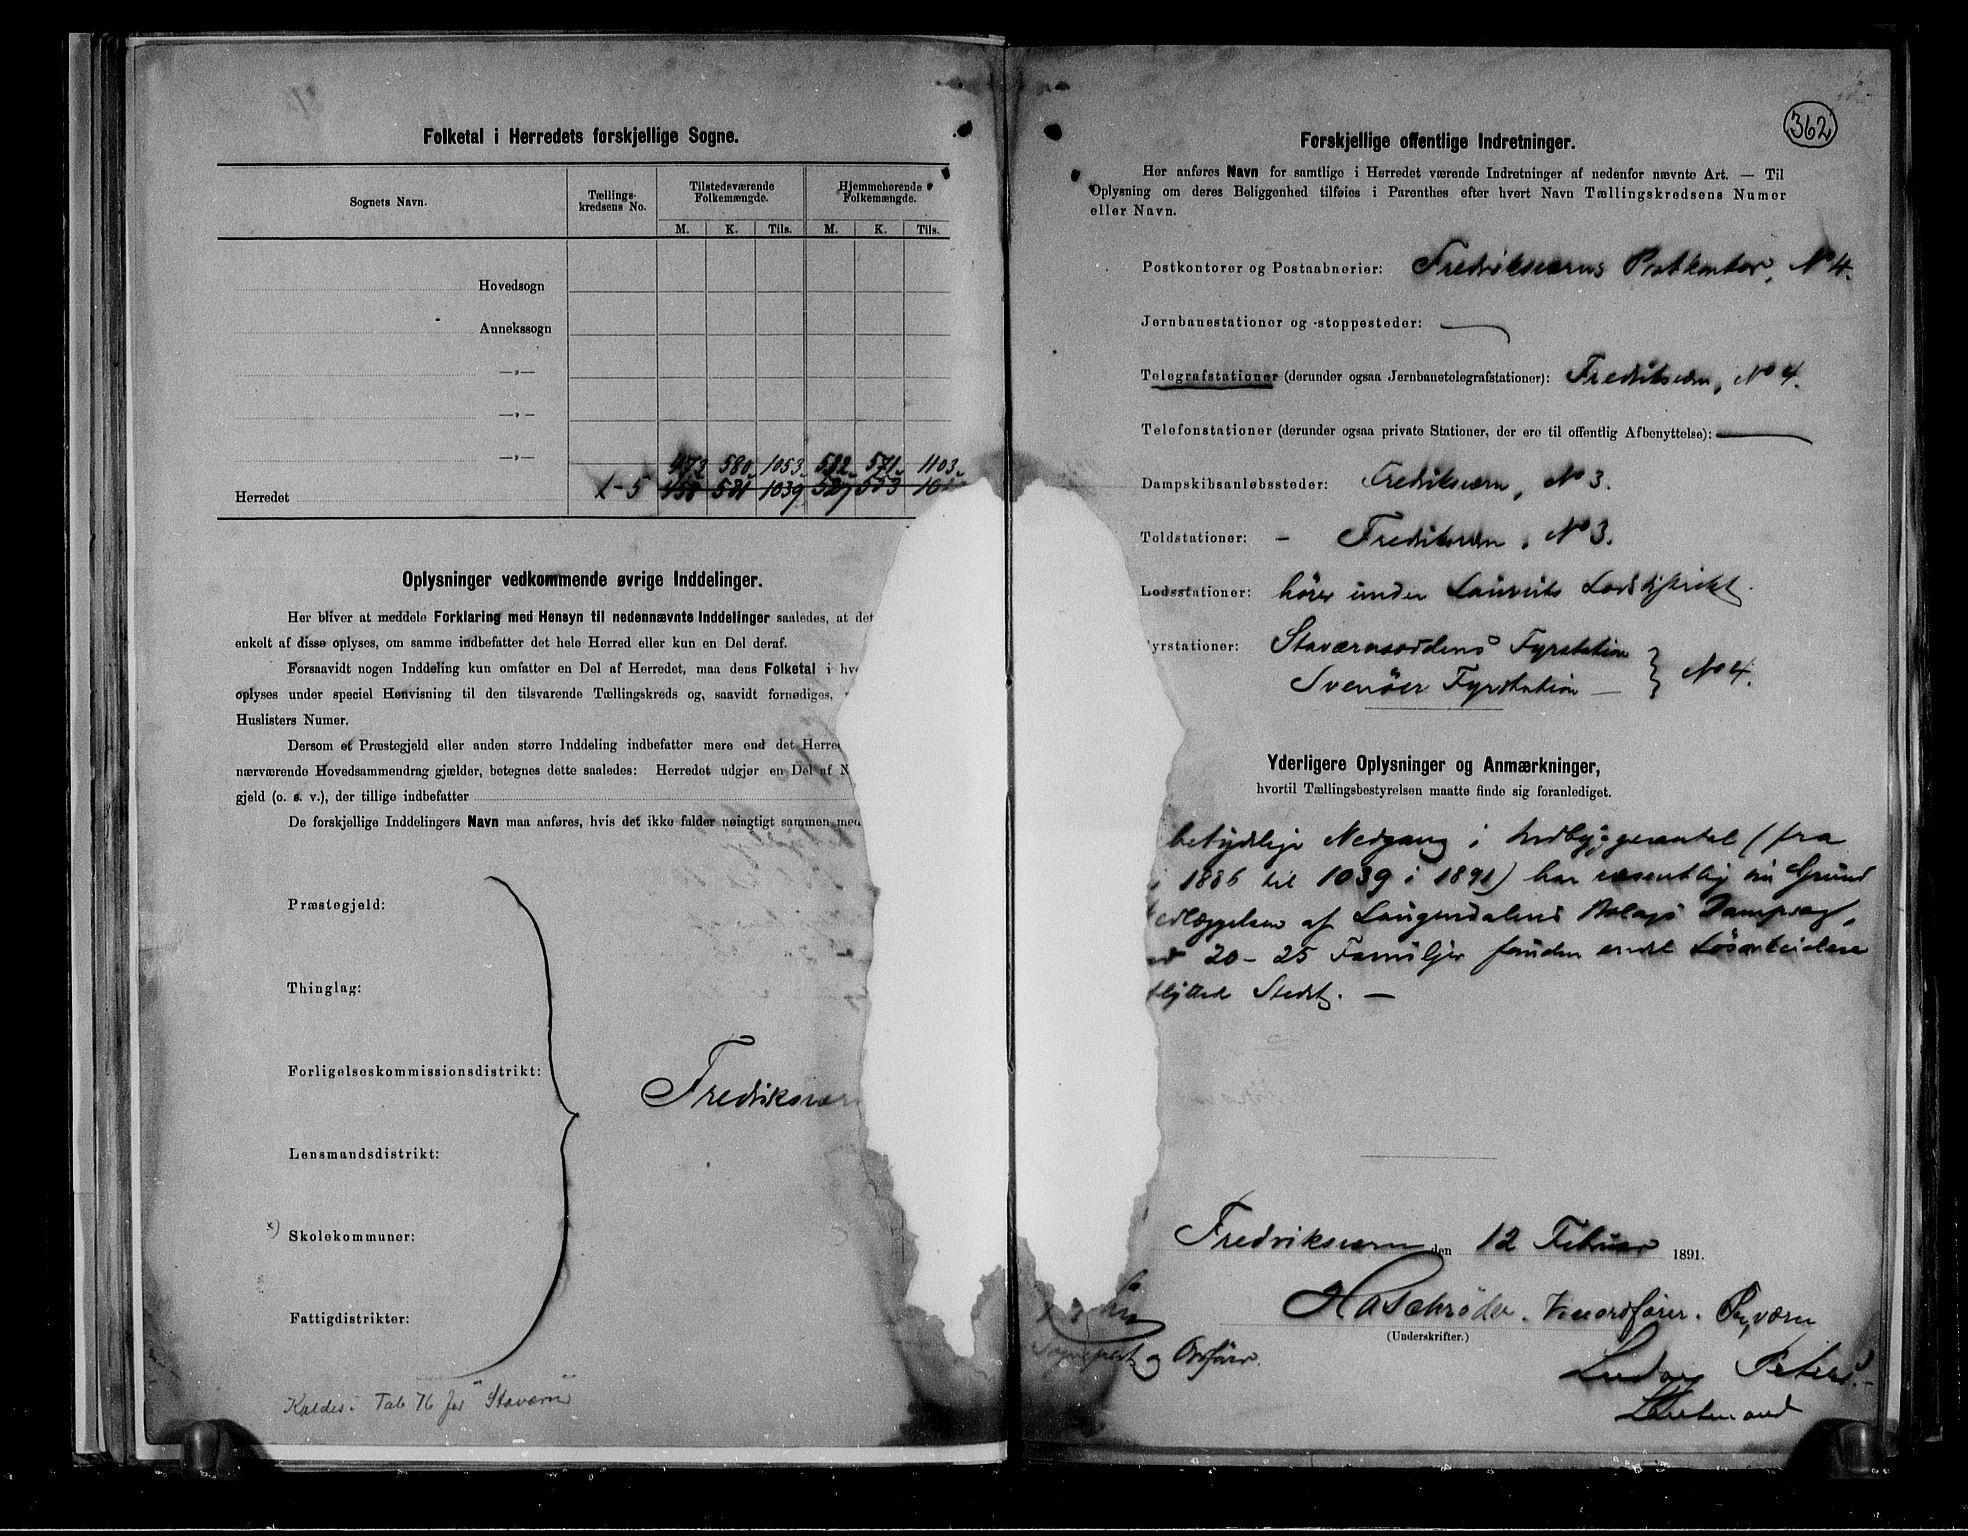 Folketal i Herredets forskjellige Sogne.
Sognets Navn.
Tællings-
kredsens No.
Tilstedeværende
Folkemængde.
Hjemmehørende
Folkemængde.
M. K. Tils. M. K. Tils.
Hovedsogn
Annekssogn
—„—
—„—
—„—
473 580 1053 532 571 1103
Herredet 1-5 458 581 1039 527
Oplysninger vedkommende øvrige Inddelinger.
Her bliver at meddele Forklaring med Hensyn til nedennævnte Inddelinger saaledes, at det
enkelt af disse oplyses, om samme indbefatter det hele Herred eller kun en Del deraf.
Forsaavidt nogen Inddeling kun omfatter en Del af Herredet, maa dens Folketal i
oplyses under speciel Henvisning til den tilsvarende Tællingskreds og, saavidt fornødiges,
Huslisters Numer.
Dersom et Præstegjeld eller anden større Inddeling indbefatter mere end det
nærværende Hovedsammendrag gjælder, betegnes dette saaledes: Herredet udgjør en Del af
gjeld (o. s. v.), der tillige indbefatter
De forskjellige Inddelingers Navn maa anføres, hvis det ikke falder nøiagtigt sammen med
Præstegjeld:
Thinglag:
Forligelseskommissionsdistrikt:
Fredriksværn
Lensmandsdistrikt:
x) Skolekommuner:
Fattigdistrikter:
Kaldes i Tab 76 for "Staværn"
362
Forskjellige offentlige Indretninger.
Her anføres Navn for samtlige i Herredet værende Indretninger af nedenfor nævnte Art. — Til
Oplysning om deres Beliggenhed tilføies i Parenthes efter hvert Navn Tællingskredsens Numer
eller Navn.
Postkontorer og Postaabnerier: Fredriksværns Postkontor, No 4.
Jernbanestationer og -stoppesteder: —
Telegrafstationer (derunder ogsaa Jernbanetelegrafstationer): Fredriksværn, No 4.
Telefonstationer (derunder ogsaa private Stationer, der ere til offentlig Afbenyttelse): —
Dampskibsanløbssteder: Fredriksværn, No 3.
Toldstationer: — Fredriksværn, No 3.
Lodsstationer: hører under Laurviks Lodsdistrikt.
Fyrstationer: Staværnsoddens Fyrstation
Svenøer Fyrstation — } No 4.
Yderligere Oplysninger og Anmærkninger,
hvortil Tællingsbestyrelsen maatte finde sig foranlediget.
betydelige Nedgang i Indbyggerantal (fra
i 1886 til 1039 i 1891) har væsentlig sin Grund
Nedlæggelsen af Laugendalens Dampsag,
20-25 Familjer foruden endel Løsarbeidere
Stedet. —
Fredriksværn den 12 Februar 1891.
Schrøder. Viceordfører.
(Underskrifter.)
Sogneprest og Ordfører.
Ludvig
Lensmand